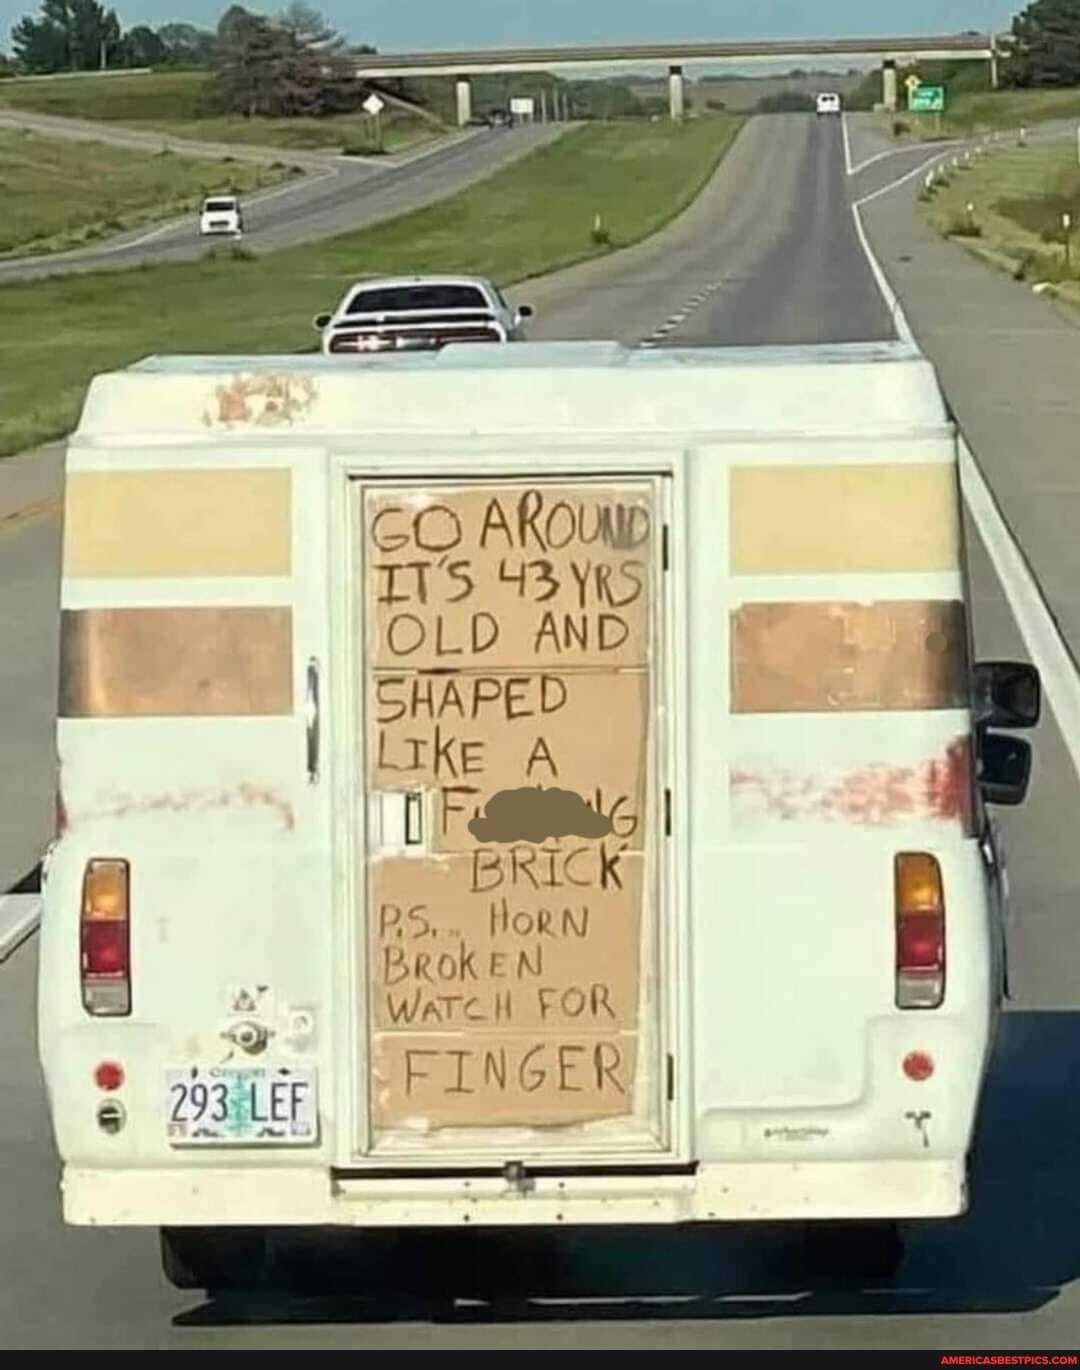 GO AROUND
IT'S 43 YRS
OLD AND
SHAPED
LIKE A
BRICK
P.S... HORN
BROKEN
WATCH FOR
FINGER
Oregon
293 LEF
AMERICASBESTPICS.COM